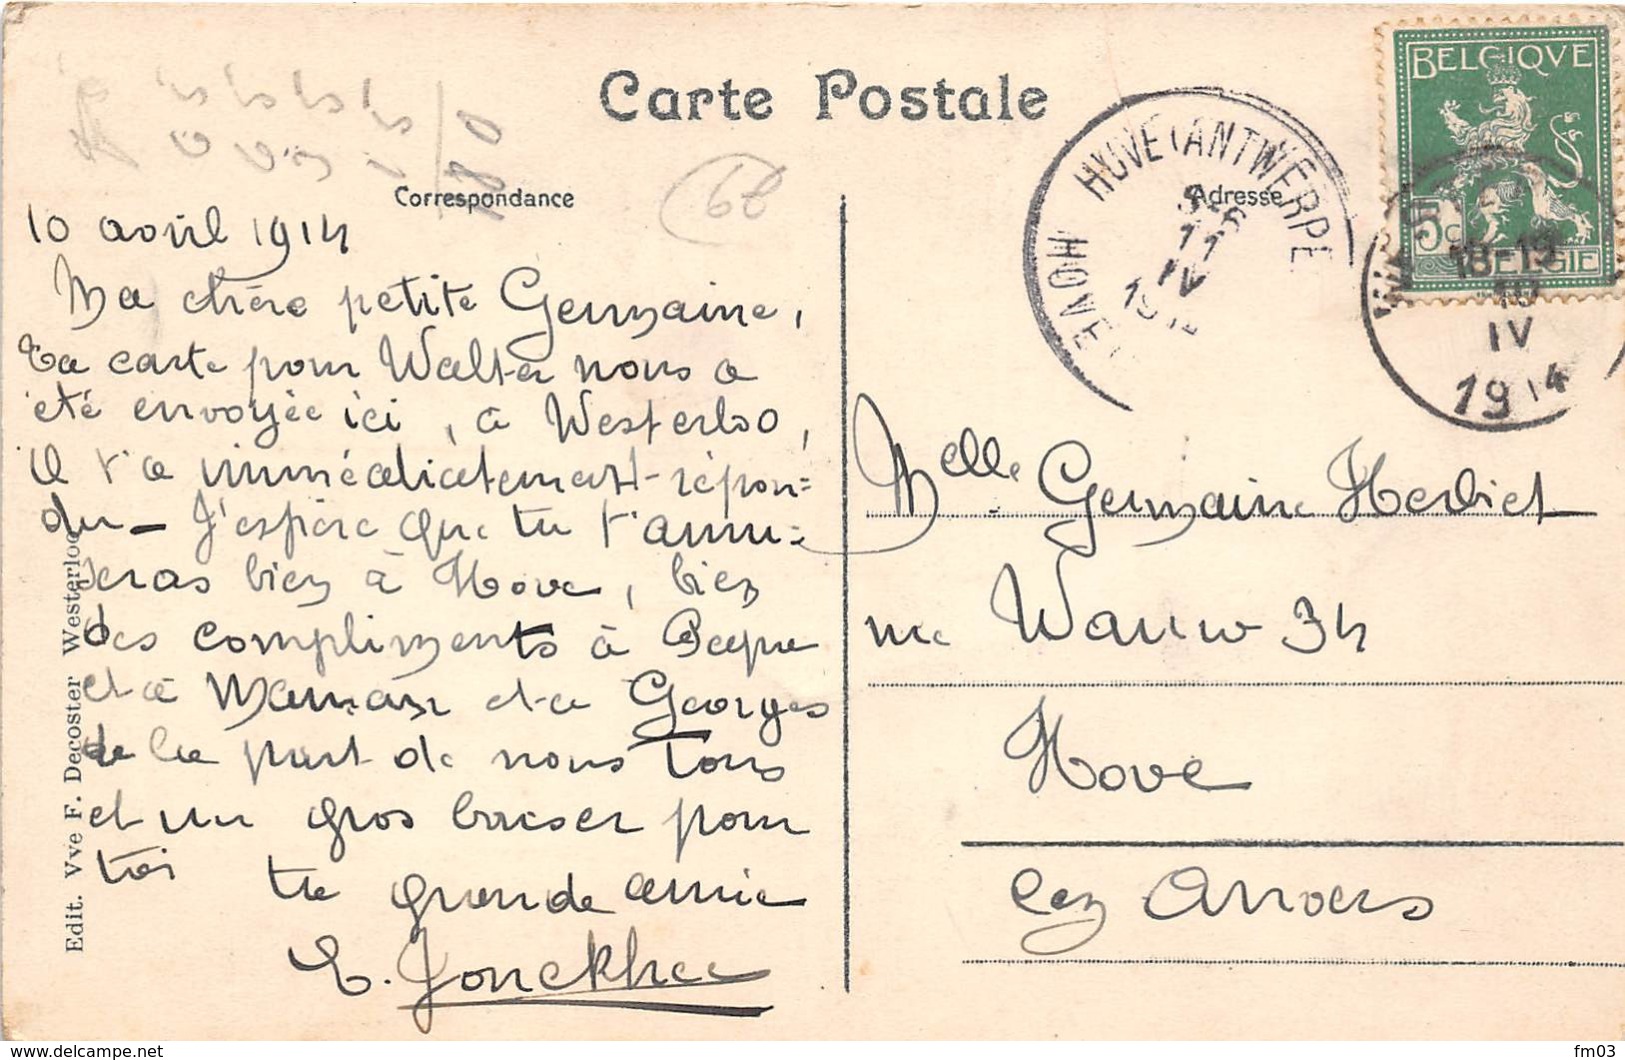 Carte Postale
Correspondance
10 avril 1914
Ma chère petite Germaine,
Ta carte pour Walter nous a
été envoyée ici, à Westerloo,
il t'a immédiatement répon=
du – J'espère que tu t'amu=
seras bien à Hove, bien
des compliments à
et à Maman et à Georges
de la part de nous tous
et un gros baiser pour
toi ta grande amie
E. Jonckhee
Edit. Vve F. Decoster Westerloo
68
180
Adresse
HOVE (ANTWERPE
HOVE
11
IV
BELGIQVE
5c
BELGIE
18-19
10
IV
1914
Melle Germaine
34
Hove
lez Anvers
www.delcampe.net
fm03